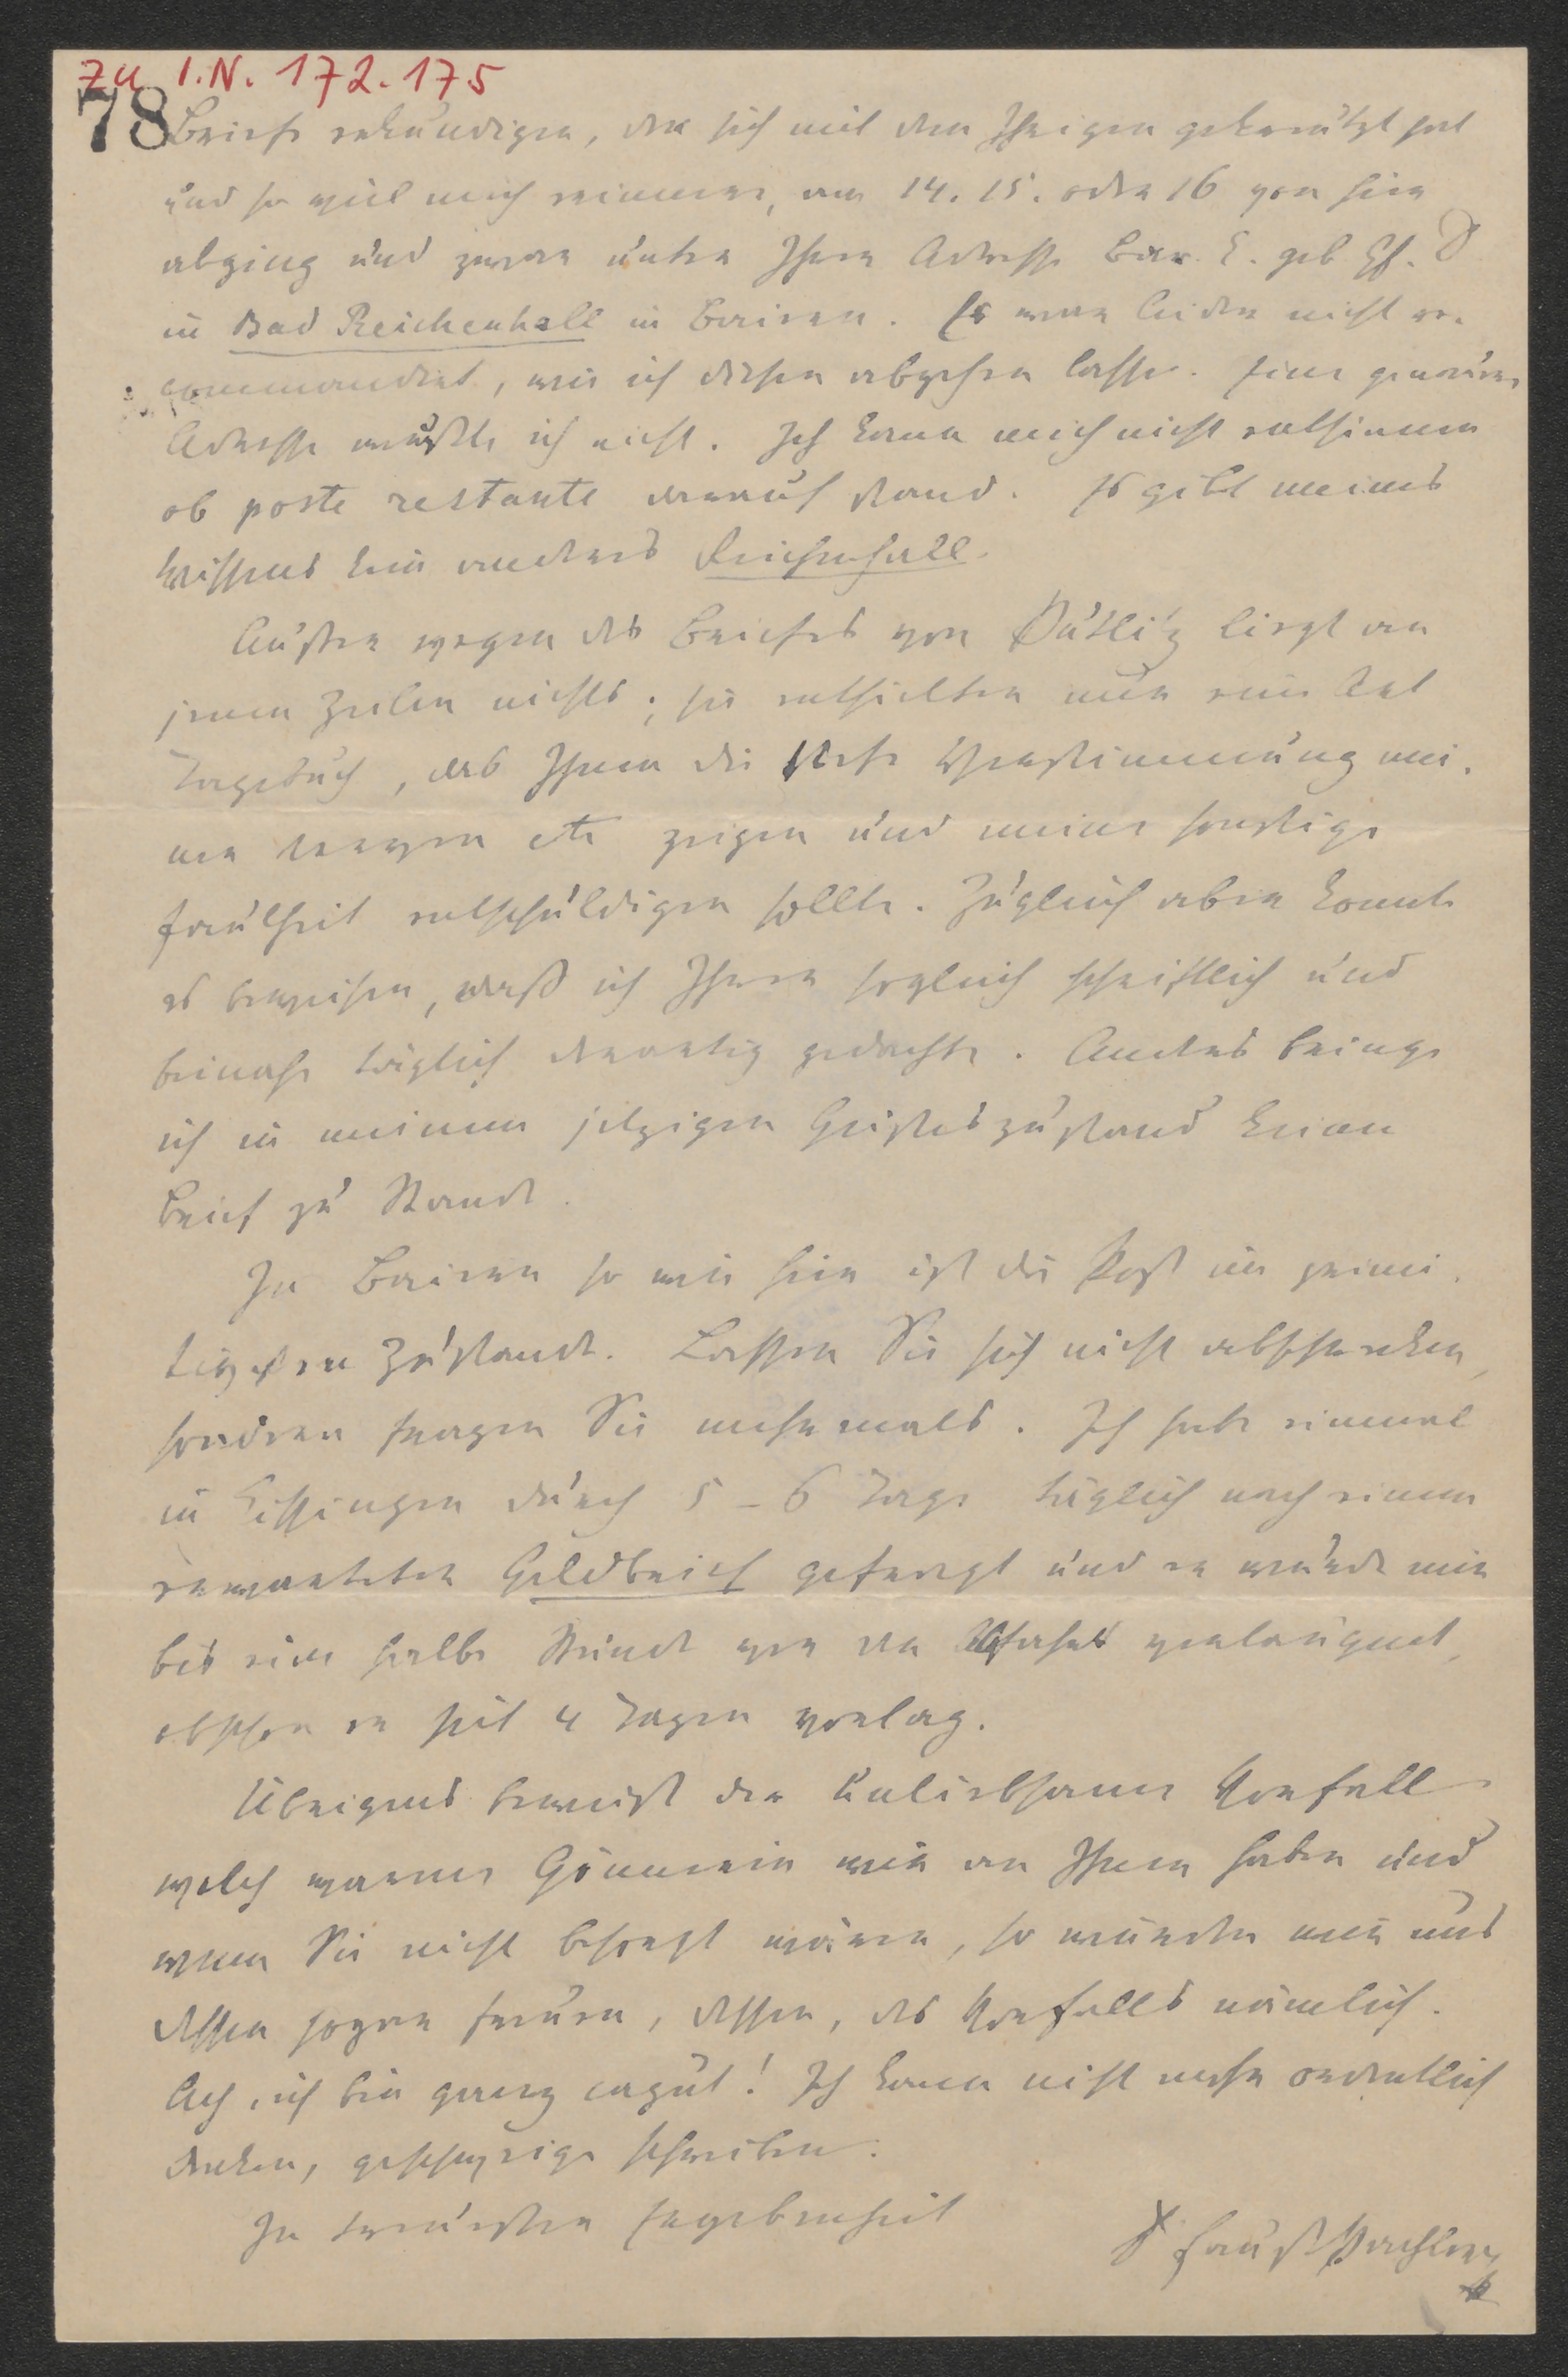 zu I.N. 172.175
78
Briefe erkundigen, der sich mit dem Ihrigen gekreuzt hat
und so viel mich erinnere, am 14. 15. oder 16 von hier
abging und zwar unter Ihrer Adresse Bar. E. geb Gf.
in Bad Reichenhall in Baiern. Er war leider nicht re-
commandirt, wie ich diesen abgehen lasse. Eine genauere
Adresse wußte ich nicht. Ich kann mich nicht entsinnen
ob poste restante darauf stand. Es gibt meines
Wissens kein anderes Reichenhall.
Außer wegen des Briefes von Putlitz liegt an
jenen Zeilen nichts; sie enthielten nur eine Art
Tagebuch, das Ihnen die tiefe Verstimmung mei-
ner Nerven etc zeigen und meine sonstige
Faulheit entschuldigen sollte. Zugleich aber konnte
es beweisen, daß ich Ihrer sogleich schriftlich und
beinahe täglich derartig gedachte. Anders bringe
ich in meinem jetzigen Geisteszustand keinen
Brief zu Stande.
In Baiern so wie hier ist die Post im primi-
tivsten Zustande. Lassen Sie sich nicht abschrecken,
sondern fragen Sie mehrmals. Ich habe einmal
in Kissingen durch 5 - 6 Tage täglich nach einem
erwarteten Geldbrief gefragt und er wurde mir
bis eine halbe Stunde vor der Abfahrt verläugnet,
obschon er seit 4 Tagen vorlag.
Übrigens beweist der unliebsame Vorfall
welch warme Gönnerin wir an Ihnen haben und
wenn Sie nicht besorgt wären, so würden wir uns
dessen sogar freuen, dessen, des Vorfalls nämlich.
Ach, ich bin ganz caput! Ich kann nicht mehr ordentlich
denken, geschweige schreiben.
In treuester Ergebenheit
Faust Pachler